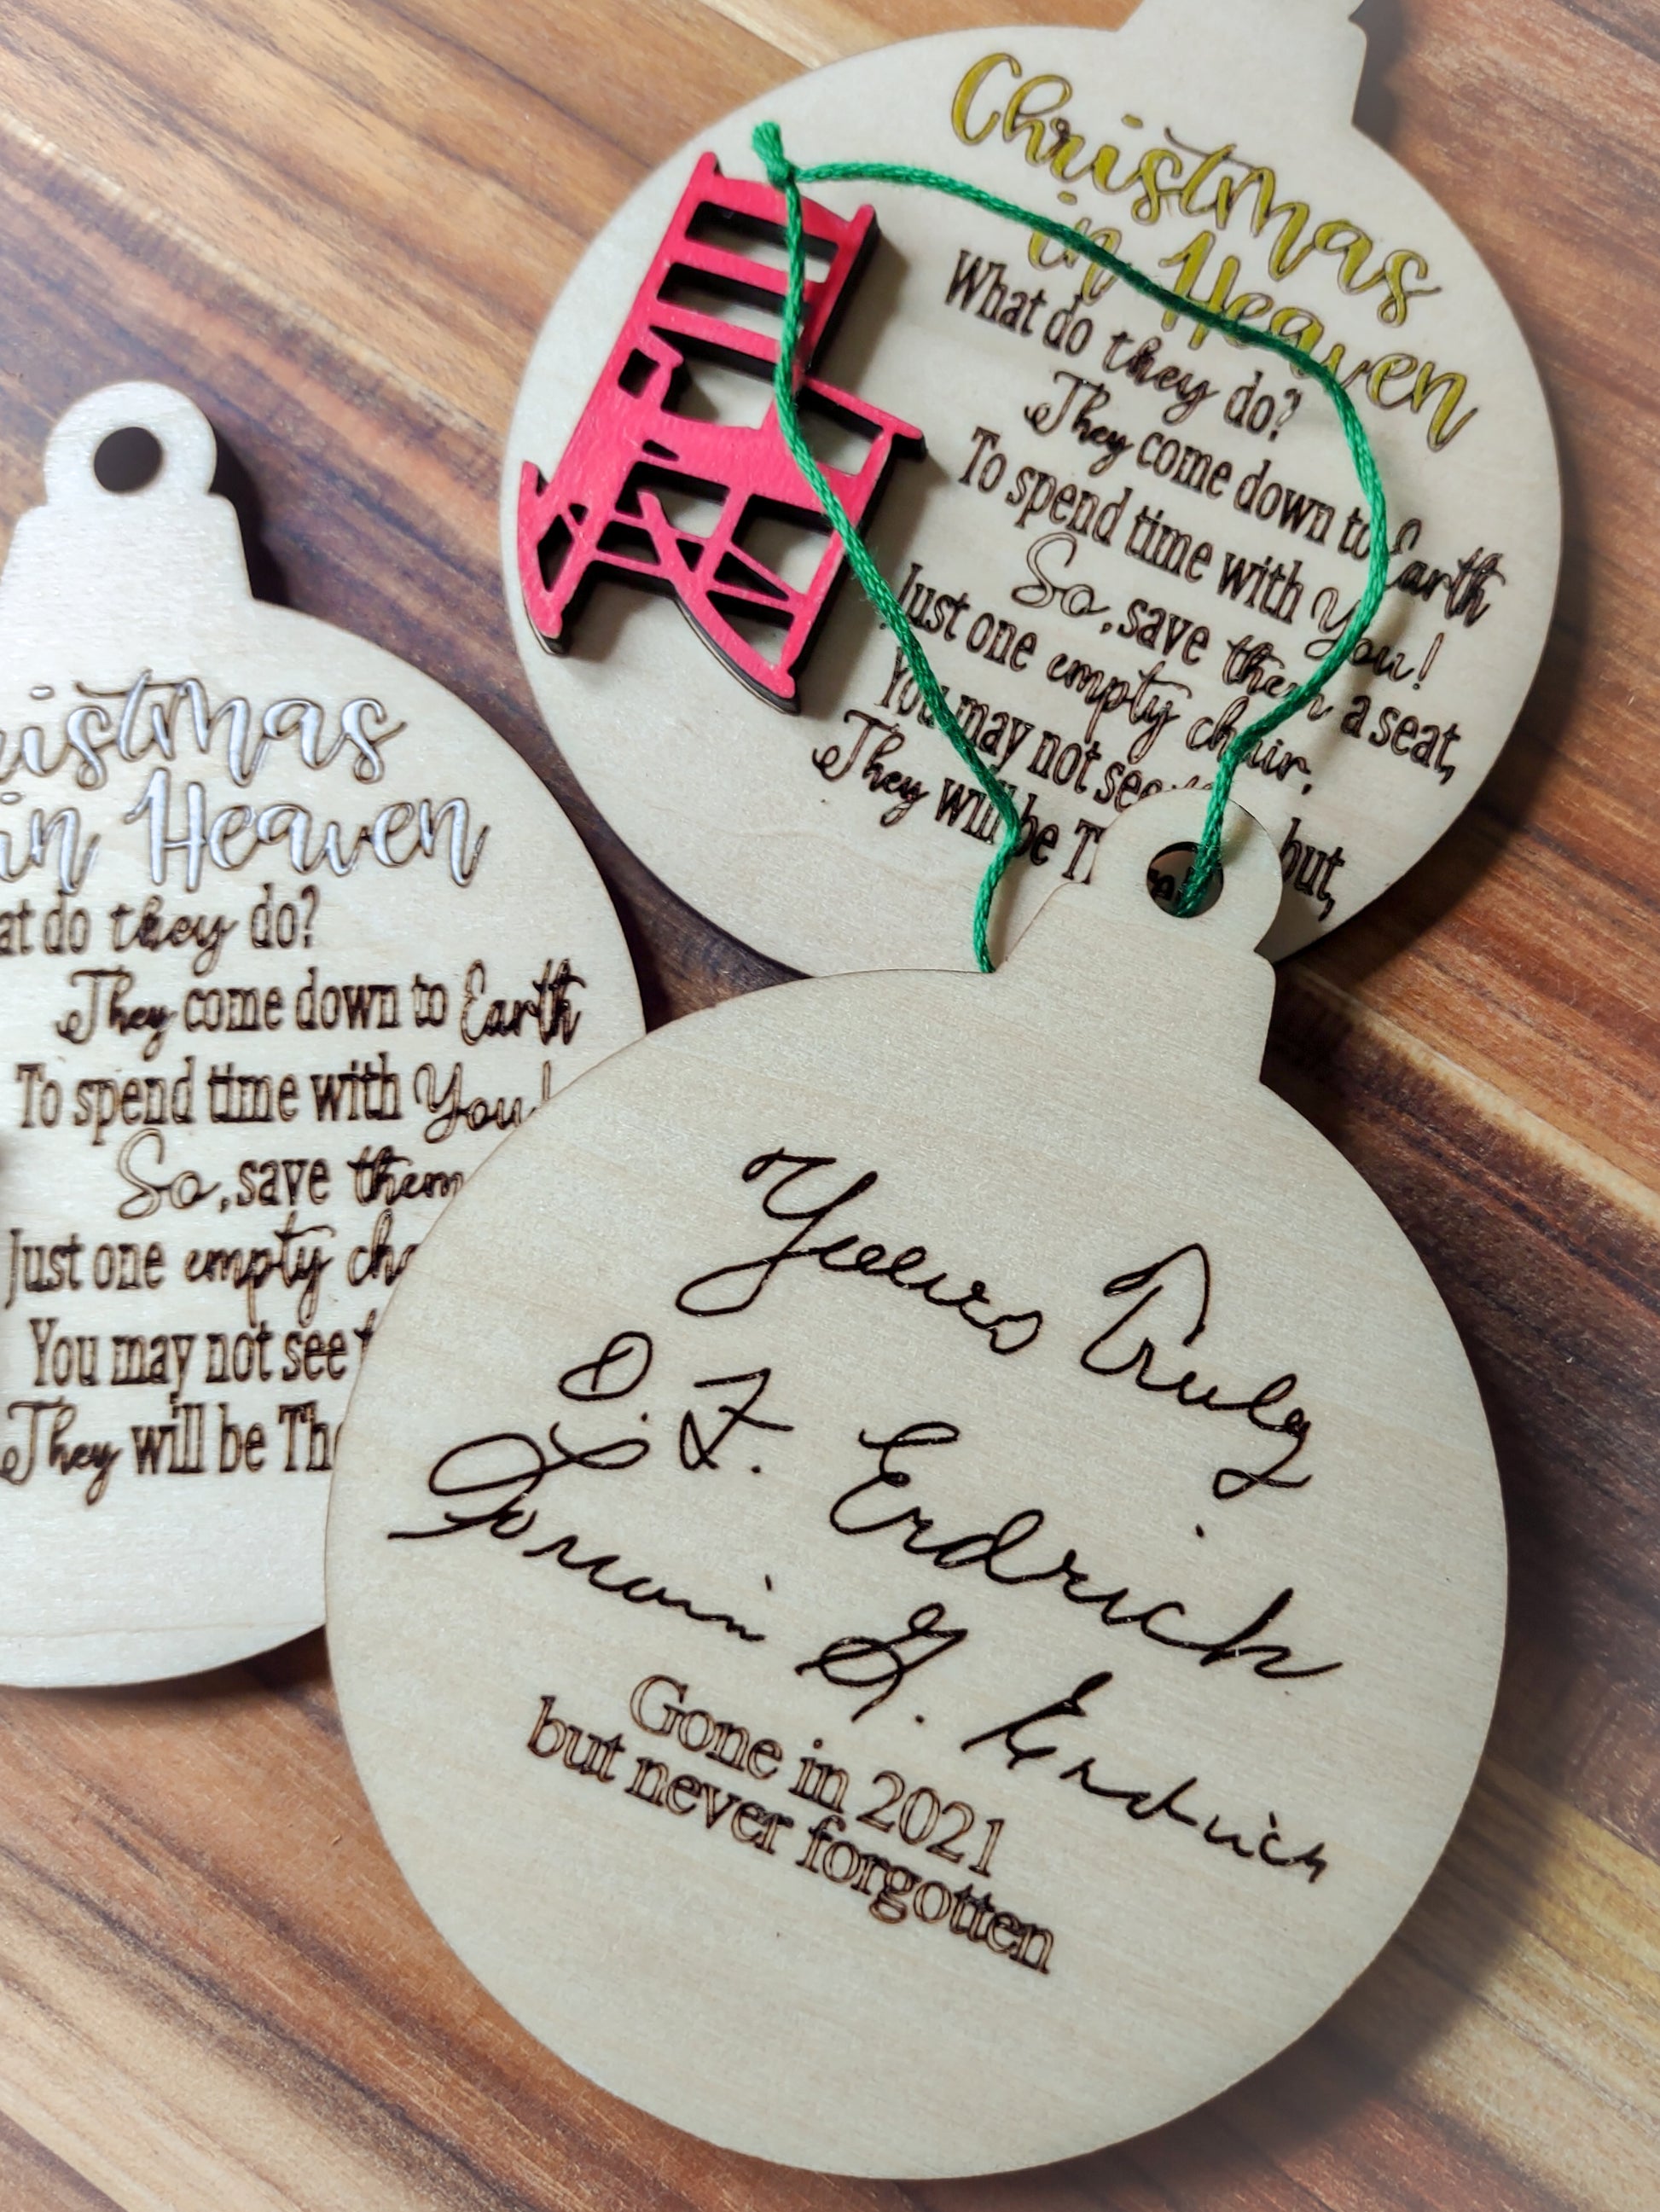 Christmas
in Heaven
What do they do?
They come down to Earth
To spend time with You!
So, save them a seat,
Just one empty chair;
You may not see but,
They will be
ristmas
in Heaven
at do they do?
They come down to Earth
To spend time with You!
So, save them
Just one empty
You may not see
They will be
Yours Truly
O. F. Erdrich
Lorrain G. Erdrich
Gone in 2021
but never forgotten